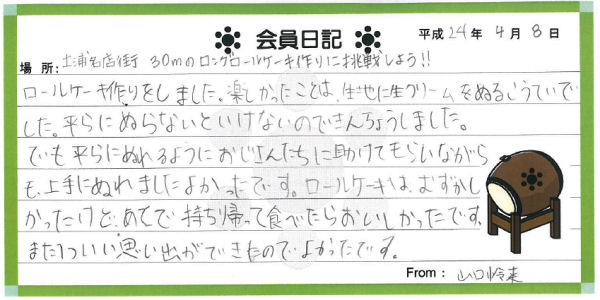 会員日記 平成24年4月8日
場所: 土浦名店街 30mのロングロールケーキ作りに挑戦しよう!!
ロールケーキ作りをしました。楽しかったことは、生地に生クリームをぬるこうていで
した。平らにぬらないといけないのできんちょうしました。
でも平らにぬれるようにおじさんたちに助けてもらいながら
も、上手にぬれましたよかったです。ロールケーキは、むずかし
かったけど、あとで持ち帰って食べたらおいしかったです。
また1ついい思い出ができたのでよかったです。
From: 山口怜来